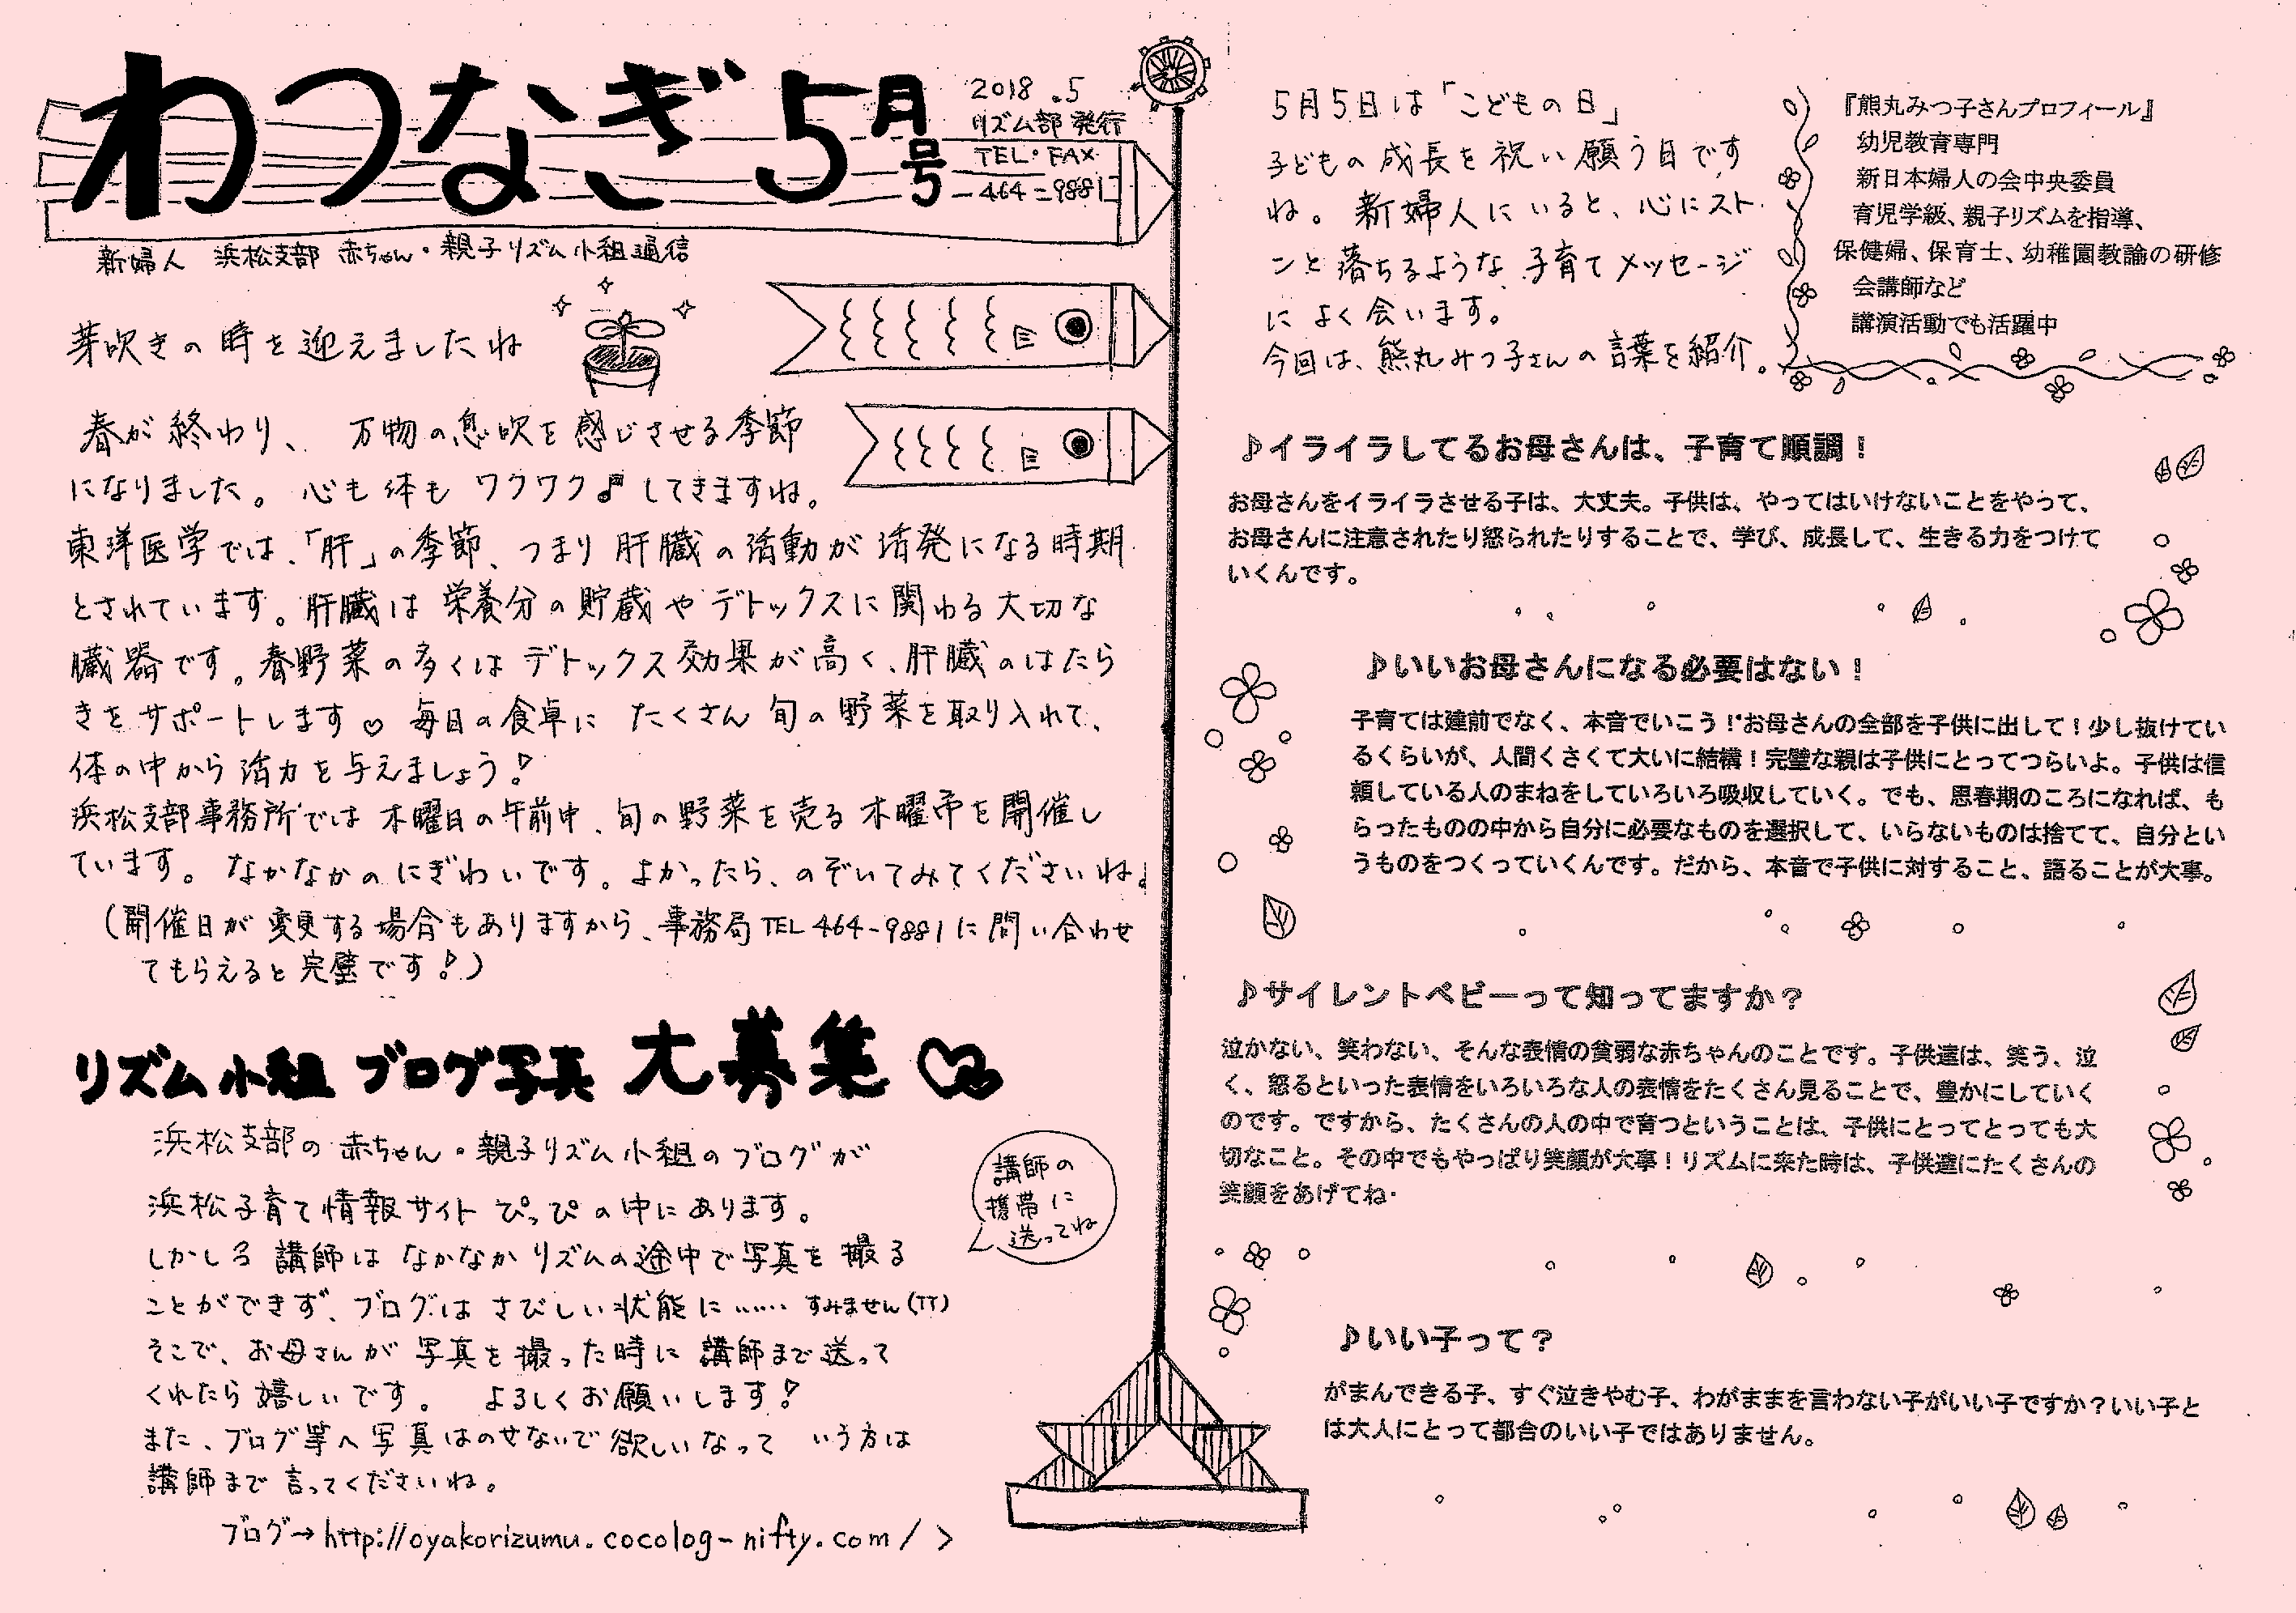 わつなぎ 5月号
2018.5
リズム部 発行
TEL・FAX
464-9881
新婦人 浜松支部 赤ちゃん・親子リズム小組通信
芽吹きの時を迎えましたね
春が終わり、 万物の息吹を感じさせる季節
になりました。 心も体も ワクワク♪してきますね。
東洋医学では、「肝」の季節、つまり肝臓の活動が活発になる時期
とされています。肝臓は栄養分の貯蔵やデトックスに関わる大切な
臓器です。春野菜の多くはデトックス効果が高く、肝臓のはたら
きをサポートします♡ 毎日の食卓に たくさん旬の野菜を取り入れて、
体の中から活力を与えましょう!
浜松支部事務所では木曜日の午前中、旬の野菜を売る木曜市を開催し
ています。なかなかのにぎわいです。よかったら、のぞいてみてくださいね♪
(開催日が変更する場合もありますから、事務局TEL464-9881に問い合わせ
てもらえると完璧です!)
リズム小組 ブログ写真 大募集
浜松支部の赤ちゃん・親子リズム小組のブログが
浜松子育て情報サイト ぴっぴの中にあります。
しかし 講師はなかなかリズムの途中で写真を撮る
ことができず、ブログはさびしい状態に…… すみません(TT)
そこで、お母さんが写真を撮った時に講師まで送って
くれたら嬉しいです。 よろしくお願いします!
また、ブログ等へ写真はのせないで欲しいなって いう方は
講師まで言ってくださいね。
ブログ→http://oyakorizumu.cocolog-nifty.com/ >
講師の
携帯に
送ってね
5月5日は「こどもの日」
子どもの成長を祝い願う日です
ね。新婦人にいると、心にスト
ンと落ちるような子育てメッセージ
によく会います。
今回は、熊丸みつ子さんの言葉を紹介。
『熊丸みつ子さんプロフィール』
幼児教育専門
新日本婦人の会中央委員
育児学級、親子リズムを指導、
保健婦、保育士、幼稚園教諭の研修
会講師など
講演活動でも活躍中
♪イライラしてるお母さんは、子育て順調!
お母さんをイライラさせる子は、大丈夫。子供は、やってはいけないことをやって、
お母さんに注意されたり怒られたりすることで、学び、成長して、生きる力をつけて
いくんです。
♪いいお母さんになる必要はない!
子育ては建前でなく、本音でいこう!お母さんの全部を子供に出して!少し抜けてい
るくらいが、人間くさくて大いに結構!完璧な親は子供にとってつらいよ。子供は信
頼している人のまねをしていろいろ吸収していく。でも、思春期のころになれば、も
らったものの中から自分に必要なものを選択して、いらないものは捨てて、自分とい
うものをつくっていくんです。だから、本音で子供に対すること、語ることが大事。
♪サイレントベビーって知ってますか?
泣かない、笑わない、そんな表情の貧弱な赤ちゃんのことです。子供達は、笑う、泣
く、怒るといった表情をいろいろな人の表情をたくさん見ることで、豊かにしていく
のです。ですから、たくさんの人の中で育つということは、子供にとってとっても大
切なこと。その中でもやっぱり笑顔が大事!リズムに来た時は、子供達にたくさんの
笑顔をあげてね・
♪いい子って?
がまんできる子、すぐ泣きやむ子、わがままを言わない子がいい子ですか?いい子と
は大人にとって都合のいい子ではありません。